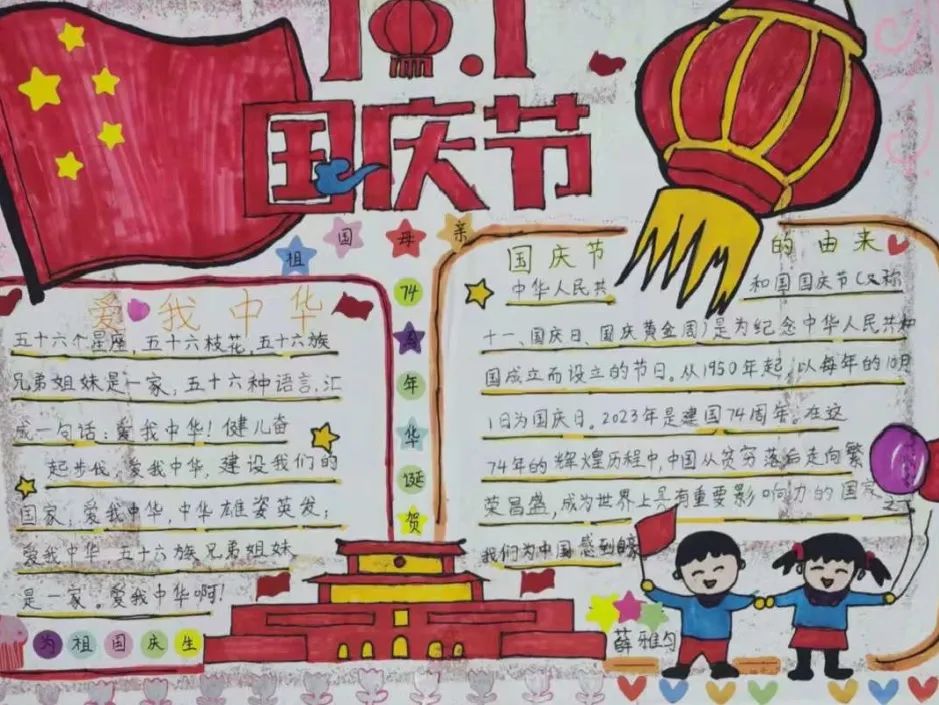 10.1
国庆节
祖国母亲
74
年
华
诞
贺
爱我中华
五十六个星座,五十六枝花,五十六族
兄弟姐妹是一家,五十六种语言,汇
成一句话:爱我中华!健儿奋
起步伐,爱我中华,建设我们的
国家,爱我中华,中华雄姿英发;
爱我中华 五十六族兄弟姐妹
是一家。爱我中华啊!
为祖国庆生
国庆节 的由来
中华人民共 和国国庆节(又称
十一、国庆日、国庆黄金周)是为纪念中华人民共和
国成立而设立的节日。从1950年起,以每年的10月
1日为国庆日。2023年是建国74周年。在这
74年的辉煌历程中,中国从贫穷落后走向繁
荣昌盛,成为世界上具有重要影响力的国家之
我们为中国感到自豪
薛雅匀